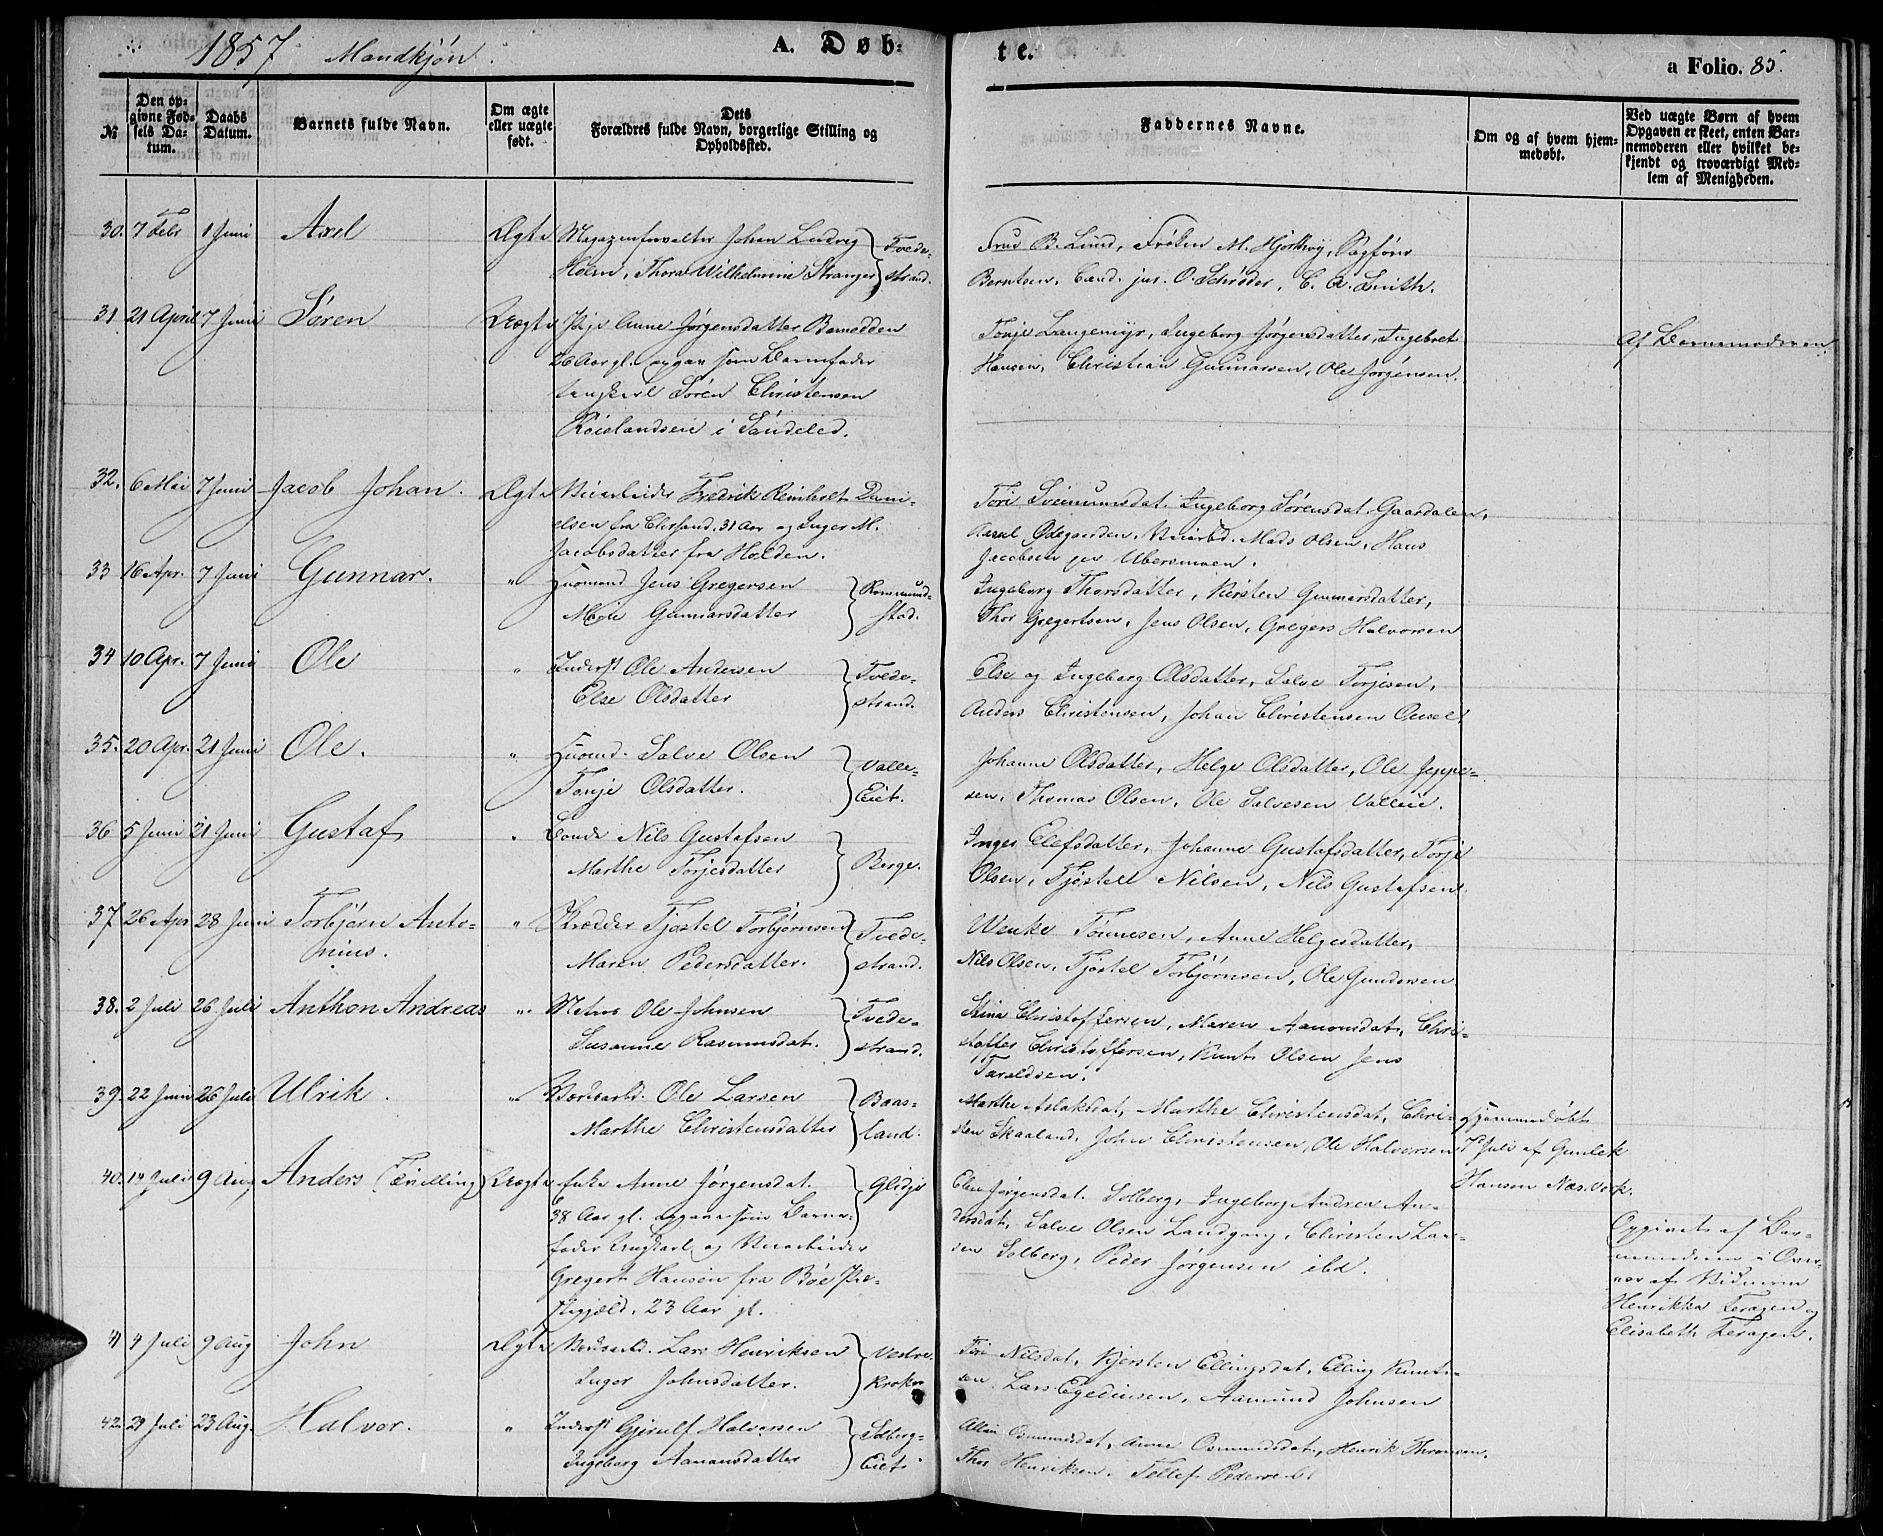 1857 Mandkjøn.
A. Døb-
te.
a Folio. 85.
№
Den op-
givne Fød-
sels Da-
tum.
Daabs
Datum.
Barnets fulde Navn.
Om ægte
eller uægte
født.
Dets
Forældres fulde Navn, borgerlige Stilling og
Opholdssted.
Faddernes Navne.
Om og af hvem hjem-
medøbt.
Ved uægte Børn af hvem
Opgaven er skeet, enten Bar-
nemoderen eller hvilket be-
kjendt og troværdigt Med-
lem af Menigheden.
30. 7 Febr 1 Juni Axel Ægte Magazinforvalter Johan Ludvig Tvede-
Holm, Thora Wilhelmine Stranger strand.
Frue B. Lund, Frøken M. Hjorthøy, Sagfører
Berntsen, Cand. jur. O. Schrøder, C. A. Smith.
31 21 April 7 Juni Søren Uægte Pige Anne Jørgensdatter
26 Aar gl. opgav som Barnefader
Ungkarl Søren Christensen
i Søndeled.
Tonje Langemyr, Ingeborg Jørgensdatter, Ingebret
Hansen, Christian Gunnarsen, Ole Jørgensen.
Af Barnemoderen.
32. 6 Mai 7 Juni Jacob Johan. Ægte Veiarbeider Fredrik Reinholt Dani-
elsen fra Chrsand, 31 Aar og Inger M.
Jacobsdatter fra Holden.
Tori Sveinumsdat. Ingeborg Sørensdat. Gaardalen,
Ødegaarden, Veiarbd. Mads Olsen, Hans
Jacobsen
33 16 Apr. 7 Juni Gunnar. " Huusmand Jens Gregersen Rommund-
Gunnarsdatter stad.
Ingeborg Thorsdatter, Kirsten Gunnarsdatter,
Thor Gregertsen, Jens Olsen, Gregers Halvorsen
34 10 Apr. 7 Juni Ole " Inderst Ole Andersen Tvede-
Else Olsdatter strand.
Else og Ingeborg Olsdatter, Salve Torjesen,
Anders Christensen, Johan Christensen
35. 20 Apr. 21 Juni Ole. " Huusmd. Salve Olsen Valle-
Tonje Olsdatter. Eiet.
Johanne Olsdatter, Helge Olsdatter, Ole Jeppe-
sen, Thomas Olsen, Ole Salvesen Valleie.
36 5 Juni 21 Juni Gustaf " Bonde Nils Gustafsen
Marthe Torjesdatter Berge.
Inger Elefsdatter, Johanne Gustafsdatter, Torje
Olsen, Tjøstel Nilsen, Nils Gustafsen
37. 26 Apr 28 Juni Torbjørn Anto- " Skrædder Tjøstel Torbjørnsen Tvede-
nius. Maren Pedersdatter. strand.
Wenke Tønnesen, Anne Helgesdatter,
Nils Olsen, Tjøstel Torbjørnsen, Ole Gundersen
38. 2 Juli 26 Juli Anthon Andreas " Matros Ole Johnsen Tvede-
Susanne Rasmusdat. strand.
Stina Christoffersen, Maren Aanonsdat, Chri-
stoffer Christoffersen, Knut Olsen Jens
Taraldsen.
39. 22 Juni 26 Juli Ulrik. " Ole Larsen Baas-
Marthe Christensdatter land.
Marthe Aslaksdat, Marthe Christensdat, Chri-
sten Skaaland, John Christensen, Ole Halvorsen
Hjemmedøbt
7 Juli af Gunlek
Hansen Næs Verk.
40. 14 Juli 9 Aug Anders (Tvilling) Uægte Enke Anne Jørgensdat. Glidje
38 Aar gl. opgav som Barne-
fader Ungkarl og Veiarbeider
Gregert Hansen fra Bøe Præ-
stegjeld, 23 Aar gl.
Elen Jørgensdat. Solberg, Ingeborg Andrea An-
dersdat, Salve Olsen Landgang, Christen Lar-
sen Solberg, Peder Jørgensen ibd.
Opgivet af Bar-
nemoderen i Over-
vær af Vidnerne
Henrikka Feragen og
Elisabeth Feragen.
41 4 Juli 9 Aug John Ægte Lars Henriksen Vestre-
Inger Johnsdatter.
Tori Nilsdat, Kjersten Ellingsdat, Elling Knut-
sen. Lars Egedinsen, Aamund Johnsen
42. 29 Juli 23 Aug. Halvor. " Inderst Gjerulf Halvorsen Solberg-
Ingeborg Aanonsdatter Eiet.
Osmundsdat, Anne Osmundsdat, Henrik Thronsen.
Thor Henriksen. Tellef Pedersen